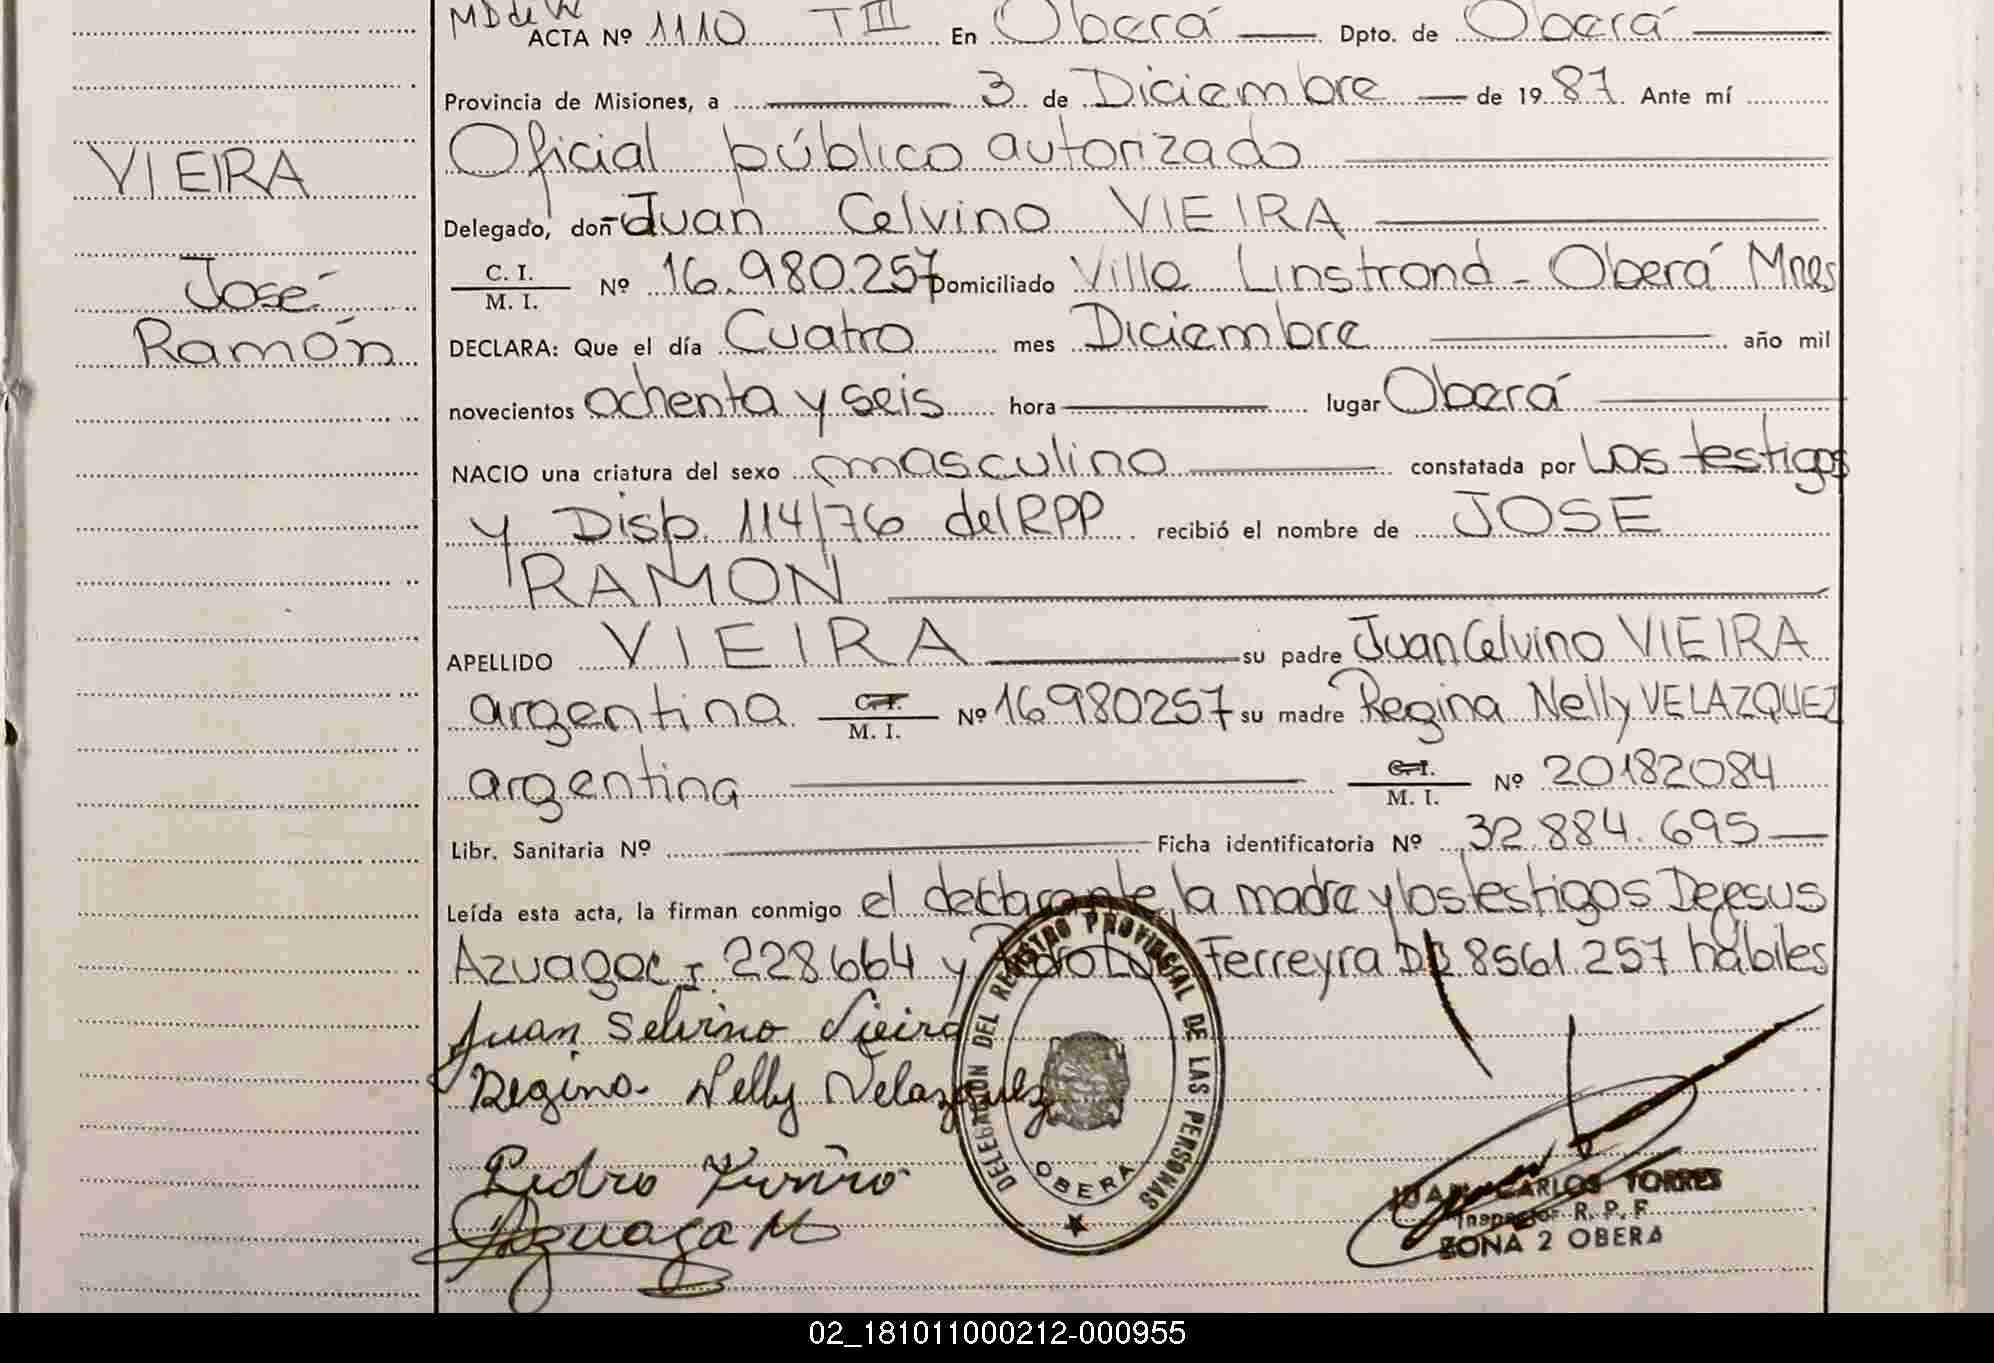 MD de W
ACTA Nº 1110 T III En Oberá Dpto. de Oberá
Provincia de Misiones, a 3 de Diciembre de 1987 Ante mí
Oficial público autorizado
Delegado, don Juan Celvino VIEIRA
C. I.
M. I. Nº 16.980.257 Domiciliado Villa Linstrond - Oberá Mnes
DECLARA: Que el día Cuatro mes Diciembre año mil
novecientos ochenta y seis hora lugar Oberá
NACIO una criatura del sexo masculino constatada por Los testigos
y Disp. 114/76 del RPP recibió el nombre de JOSE
RAMON
APELLIDO VIEIRA su padre Juan Celvino VIEIRA
argentina C. I. M. I. Nº 16980257 su madre Regina Nelly VELAZQUEZ
argentina C. I. M. I. Nº 20182084
Libr. Sanitaria Nº Ficha identificatoria Nº 32.884.695
Leída esta acta, la firman conmigo el declarante, la madre y los testigos Dejesus
Azuaga 228.664 y Ferreyra 8561.257 hábiles
Juan Selvino Vieira
Regina Nelly Velazquez
Pedro
Azuaga M
VIEIRA
José
Ramón
DELEGACION DEL REGISTRO PROVINCIAL DE LAS PERSONAS
OBERA
JUAN CARLOS TORRES
Inspector R. P. F.
ZONA 2 OBERA
02_181011000212-000955